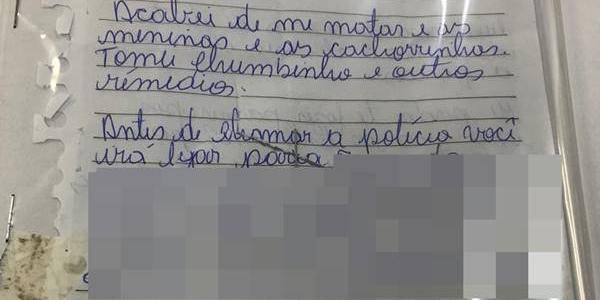 Acabei de me matar e as
meninas e as cachorrinhas.
Tomei chumbinho e outros
rémedios.
Antes de chamar a polícia você
irá